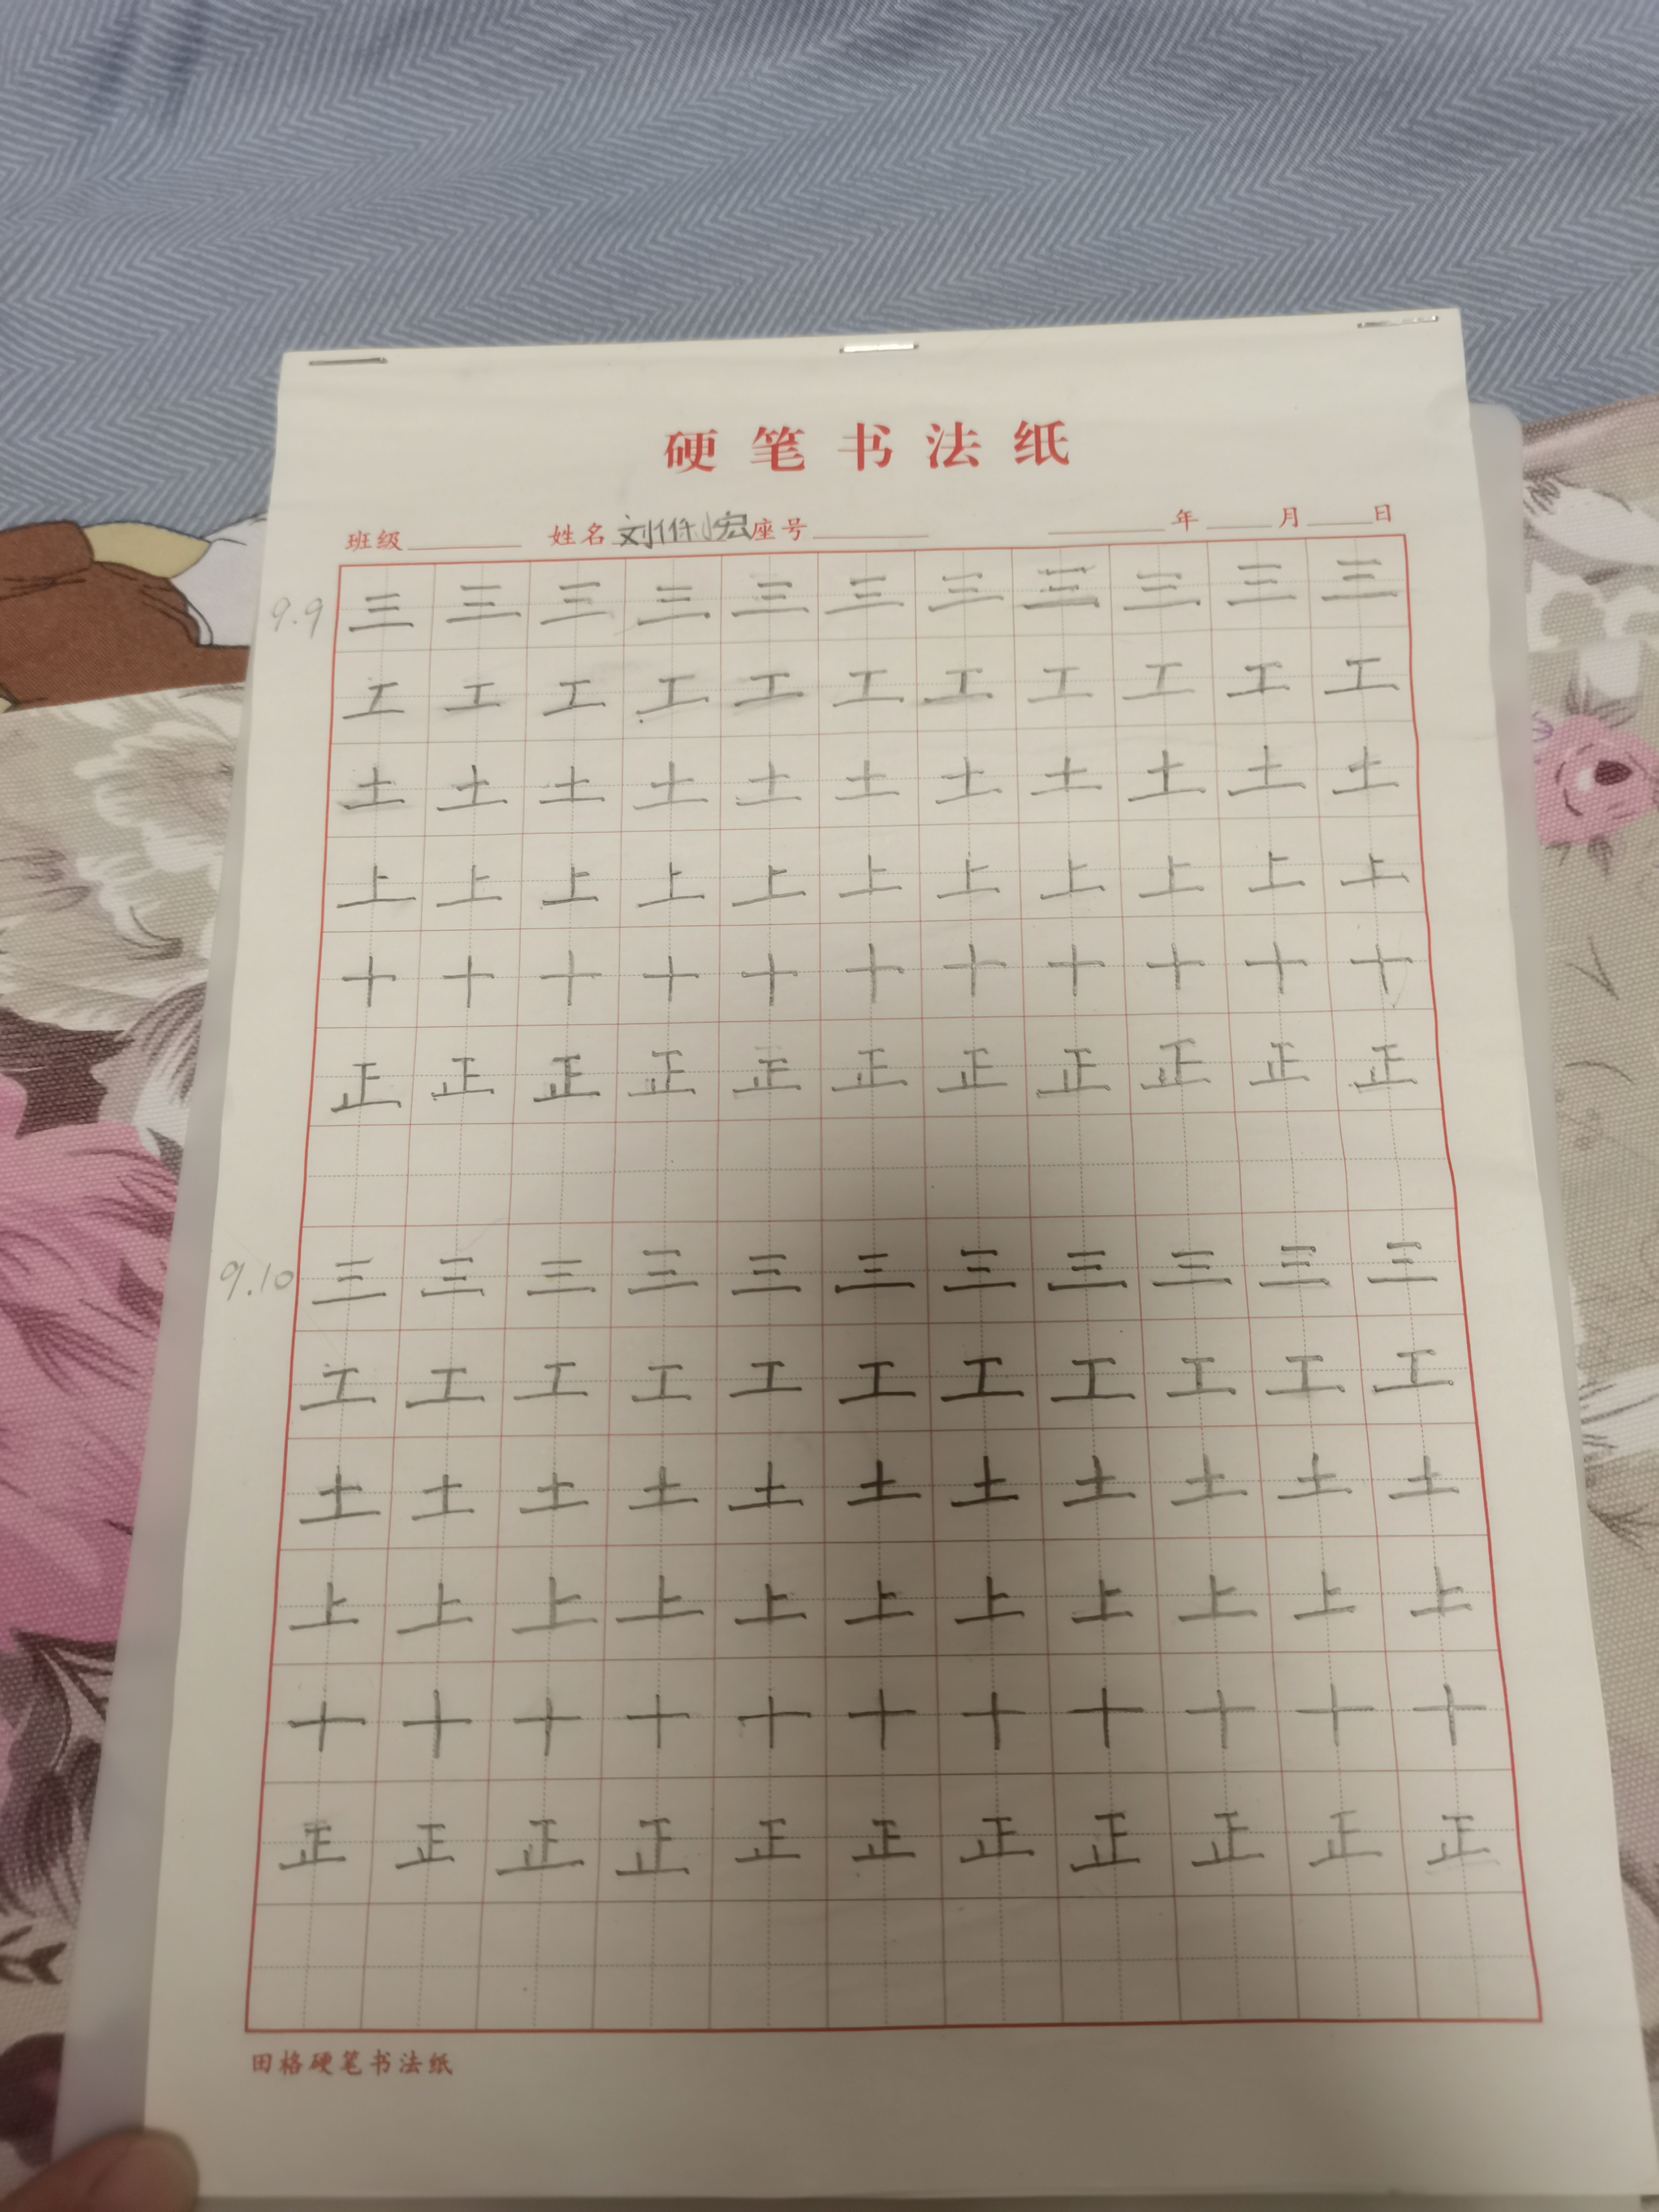 硬笔书法纸
班级 姓名 刘 座号 年 月 日
9.9 三三三三三三三三三三三
工工工工工工工工工工工
土土土土土土土土土土土
上上上上上上上上上上上
十十十十十十十十十十十
正正正正正正正正正正正
9.10 三三三三三三三三三三三
工工工工工工工工工工工
土土土土土土土土土土土
上上上上上上上上上上上
十十十十十十十十十十十
正正正正正正正正正正正
田格硬笔书法纸